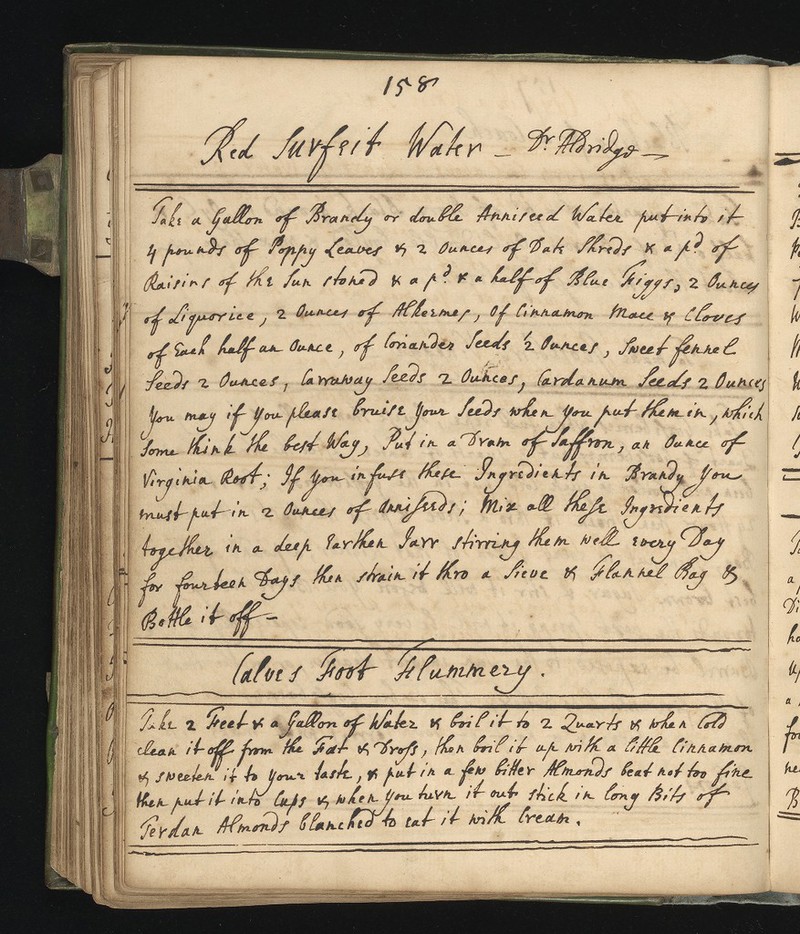 158
Red Surfeit Water - Dr Aldridge -
Take a Gallon of Brandy or double Anniseed Water put into it
4 pounds of Poppy Leaves & 2 Ounces of Date Shreds & a pd of
Raisins of the Sun stoned & a pd & a half of Blue Figgs, 2 Ounces
of Liquorice, 2 Ounces of Alkermes, Of Cinnamon Mace & Cloves
of Each half an Ounce, of Coriander Seeds ½ Ounces, Sweet fennel
Seeds 2 Ounces, Carraway Seeds 2 Ounces, Cardanum Seeds 2 Ounces
You may if you please bruise your Seeds when you put them in, which
some think the best Way, Put in a Dram of Saffron, an Ounce of
Virginia Root; If you infuse these Ingredients in Brandy you
must put in 2 Ounces of Anniseeds; Mix all these Ingredients
together in a deep Earthen Jarr stirring them well every Day
for fourteen Days then strain it thro a Sieve & Flannel Bag &
Bottle it off -
Calves Foot Flummery.
Take 2 Feet & a Gallon of Water & boil it to 2 Quarts & when Cold
clean it off from the Fat & Dross, then boil it up with a little Cinnamon
& sweeten it to your taste, & put in a few bitter Almonds beat not too fine
then put it into Cups & when you turn it out stick in long Bits of
Jerdan Almonds blanched to eat it with Cream.